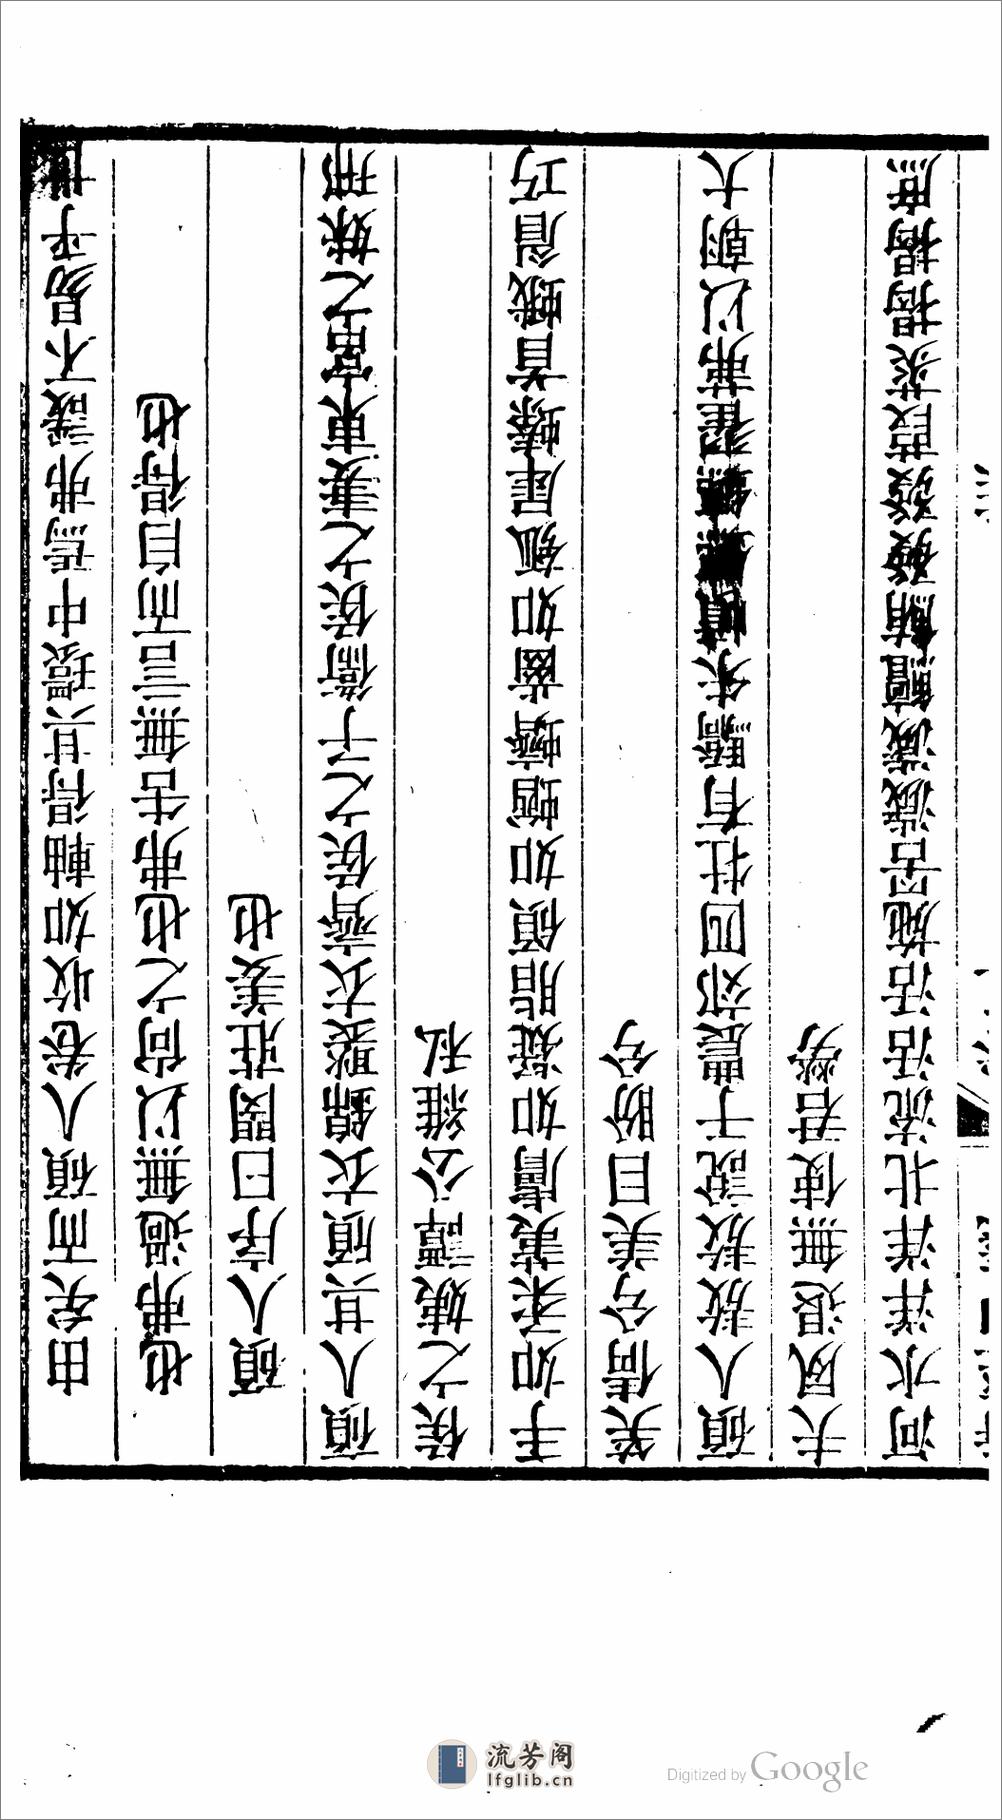 由矣而碩人卷收如軸得其環中焉弗諼不易乎世
也弗過無以尚之也弗告無言而自得也
碩人序曰閔莊姜也
碩人其頎衣錦褧衣齊侯之子衛侯之妻東宮之妹邢
侯之姨譚公維私
手如柔荑膚如凝脂領如蝤蠐齒如瓠犀螓首蛾眉巧
笑倩兮美目盼兮
碩人敖敖說于農郊四牡有驕朱幩鑣鑣翟茀以朝大
夫夙退無使君勞
河水洋洋北流活活施罟濊濊鱣鮪發發葭菼揭揭庶
流芳阁
lfglib.cn
Digitized by Google